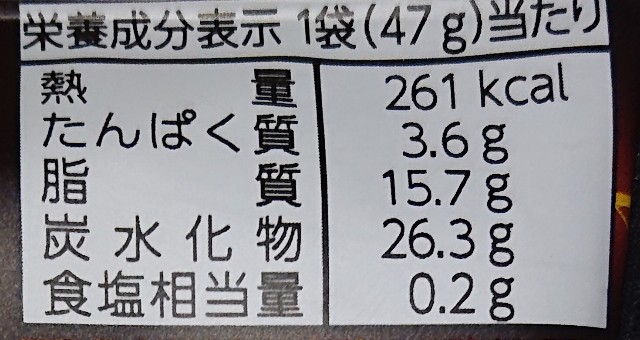 栄養成分表示 1袋(47g)当たり
熱量 261 kcal
たんぱく質 3.6g
脂質 15.7g
炭水化物 26.3g
食塩相当量 0.2g